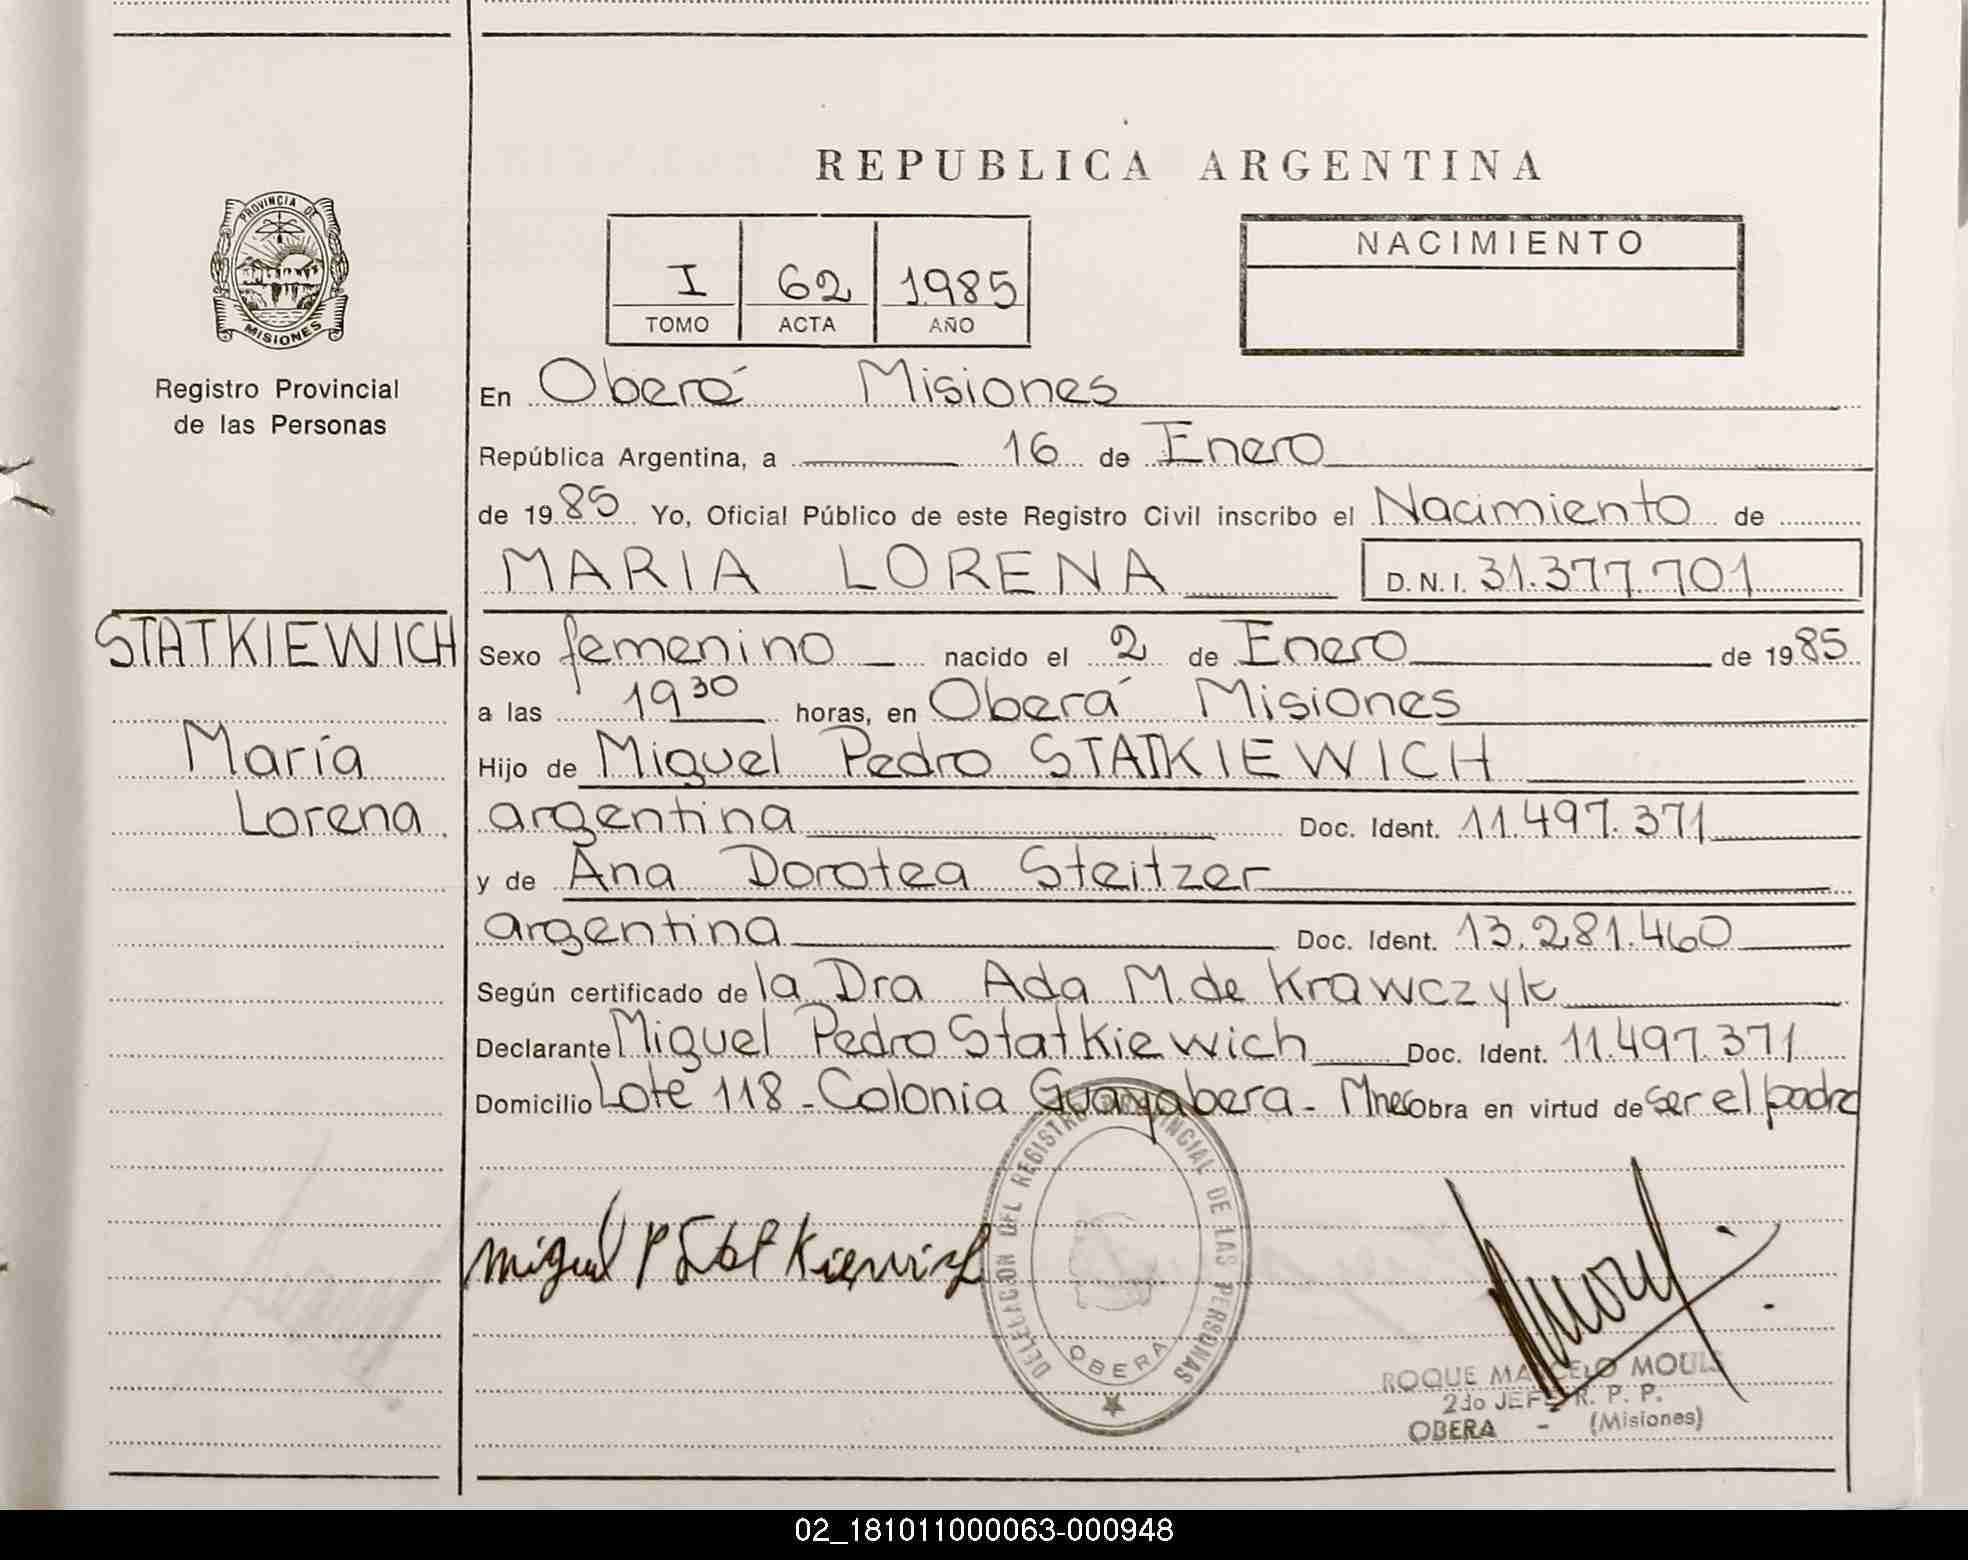 REPUBLICA ARGENTINA
PROVINCIA DE
MISIONES
Registro Provincial
de las Personas
I 62 1985
TOMO ACTA AÑO
NACIMIENTO
En Oberá Misiones
República Argentina, a 16 de Enero
de 1985 Yo, Oficial Público de este Registro Civil inscribo el Nacimiento de
MARIA LORENA D.N.I. 31.377.701
STATKIEWICH
María
Lorena
Sexo femenino nacido el 2 de Enero de 1985
a las 19 30 horas, en Oberá Misiones
Hijo de Miguel Pedro STATKIEWICH
argentina Doc. Ident. 11.497.371
y de Ana Dorotea Steitzer
argentina Doc. Ident. 13.281.460
Según certificado de la Dra Ada M. de Krawczyk
Declarante Miguel Pedro Statkiewich Doc. Ident. 11.497.371
Domicilio Lote 118 - Colonia Guayabera - Mnes Obra en virtud de ser el padre
Miguel P Statkiewich
DELEGACION DEL REGISTRO PROVINCIAL DE LAS PERSONAS
OBERA
ROQUE MARCELO MOULS
2do JEFE R. P. P.
OBERA - (Misiones)
02_181011000063-000948